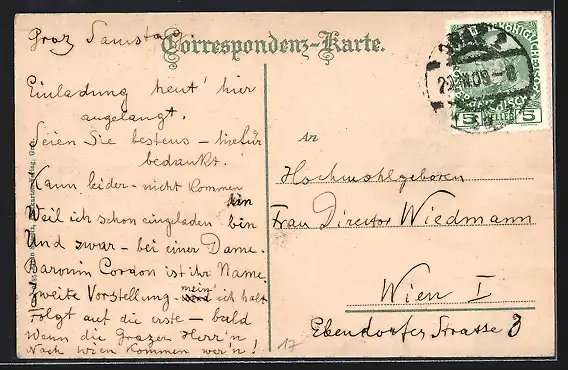 Graz Samstag.
Correspondenz-Karte.
Einladung heut' hier
angelangt.
Seien Sie bestens – hiefür
bedankt.
Kann leider – nicht kommen
Weil ich schon eingeladen bin
Und zwar – bei einer Dame.
Baronin Cordon ist ihr Name.
Zweite Vorstellung – mein' ich halt
Folgt auf die erste – bald
Wenn die Grazer Herr'n
Nach Wien kommen wer'n!
An
Hochwohlgeboren
Frau Director Wiedmann
Wien I
Ebendorfer Strasse 3
17
5 HELLER 5